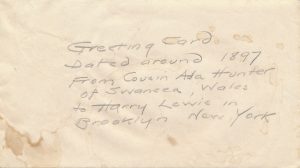 Greeting Card
Dated around 1897
From Cousin Ada Hunter
of Swansea, Wales
to Harry Lewis in
Brooklyn New York